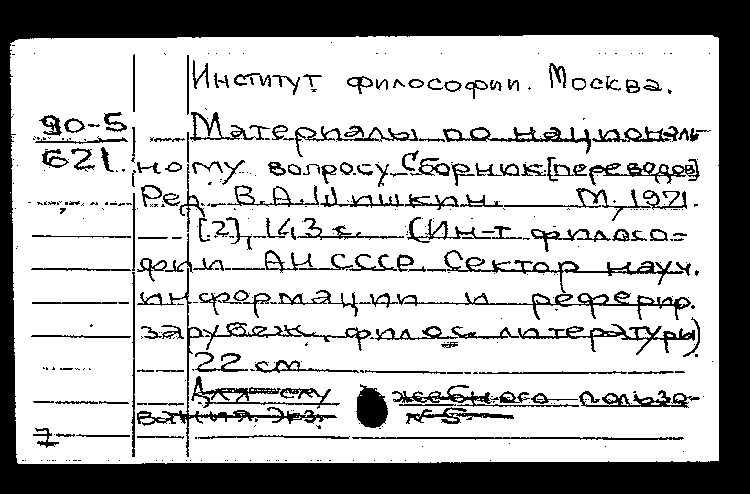 Институт философии. Москва.
90-5 Материалы по националь-
621. ному вопросу Сборник [переводов]
Ред. В.А. Шишкин. М., 1971.
[2], 143 с. (Ин-т филосо-
фии АН СССР. Сектор науч.
информации и реферир.
зарубеж. филос. литературы)
22 см.
Для слу жебного пользо-
вания. Экз. № 5.
7